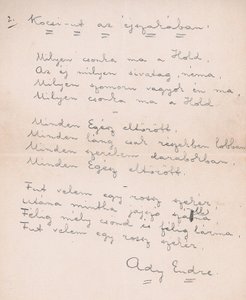 2. Kocsi-út az éjszakában.
Milyen csonka ma a Hold,
Az éj milyen sivatag, néma,
Milyen szomorú vagyok én ma,
Milyen csonka ma a Hold.
Minden Egész eltörött,
Minden láng csak részekben lobban,
Minden szerelem darabokban,
Minden Egész eltörött.
Fut velem egy rossz szekér,
Utána mintha jajszó szállna
Félig mély csönd és félig lárma,
Fut velem egy rossz szekér.
Ady Endre.